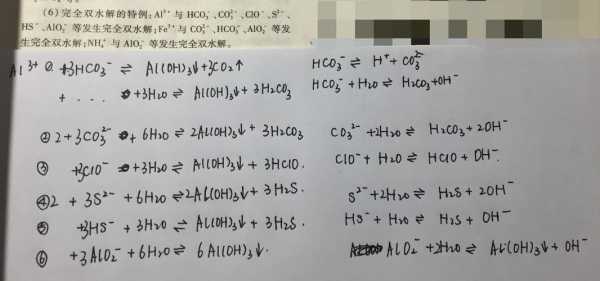 (6)完全双水解的特例:Al³⁺ 与 HCO₃⁻、CO₃²⁻、ClO⁻、S²⁻、
HS⁻、AlO₂⁻ 等发生完全双水解;Fe³⁺ 与 CO₃²⁻、HCO₃⁻、AlO₂⁻ 等发
生完全双水解;NH₄⁺ 与 AlO₂⁻ 等发生完全双水解。
Al³⁺ ① +3HCO₃⁻ ⇌ Al(OH)₃↓+3CO₂↑ HCO₃⁻ ⇌ H⁺ + CO₃²⁻
+ ... +3H₂O ⇌ Al(OH)₃↓ + 3H₂CO₃ HCO₃⁻ + H₂O ⇌ H₂CO₃+OH⁻
② 2 + 3CO₃²⁻ + 6H₂O ⇌ 2Al(OH)₃↓ + 3H₂CO₃ CO₃²⁻ + 2H₂O ⇌ H₂CO₃ + 2OH⁻
③ +3ClO⁻ +3H₂O ⇌ Al(OH)₃↓ + 3HClO. ClO⁻ + H₂O ⇌ HClO + OH⁻.
④ 2 + 3S²⁻ + 6H₂O ⇌ 2Al(OH)₃↓ + 3H₂S. S²⁻ + 2H₂O ⇌ H₂S + 2OH⁻
⑤ +3HS⁻ + 3H₂O ⇌ Al(OH)₃↓ + 3H₂S. HS⁻ + H₂O ⇌ H₂S + OH⁻
⑥ +3AlO₂⁻ + 6H₂O ⇌ 6Al(OH)₃↓. AlO₂⁻ + 2H₂O ⇌ Al(OH)₃↓ + OH⁻